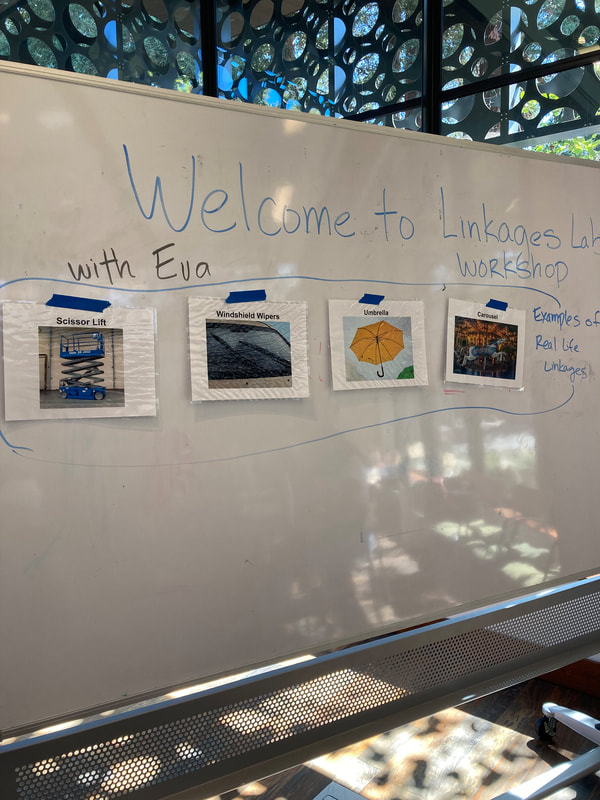 Welcome to Linkages Lab
workshop
with Eva
Scissor Lift
Windshield Wipers
Umbrella
Carousel
Examples of
Real life
Linkages